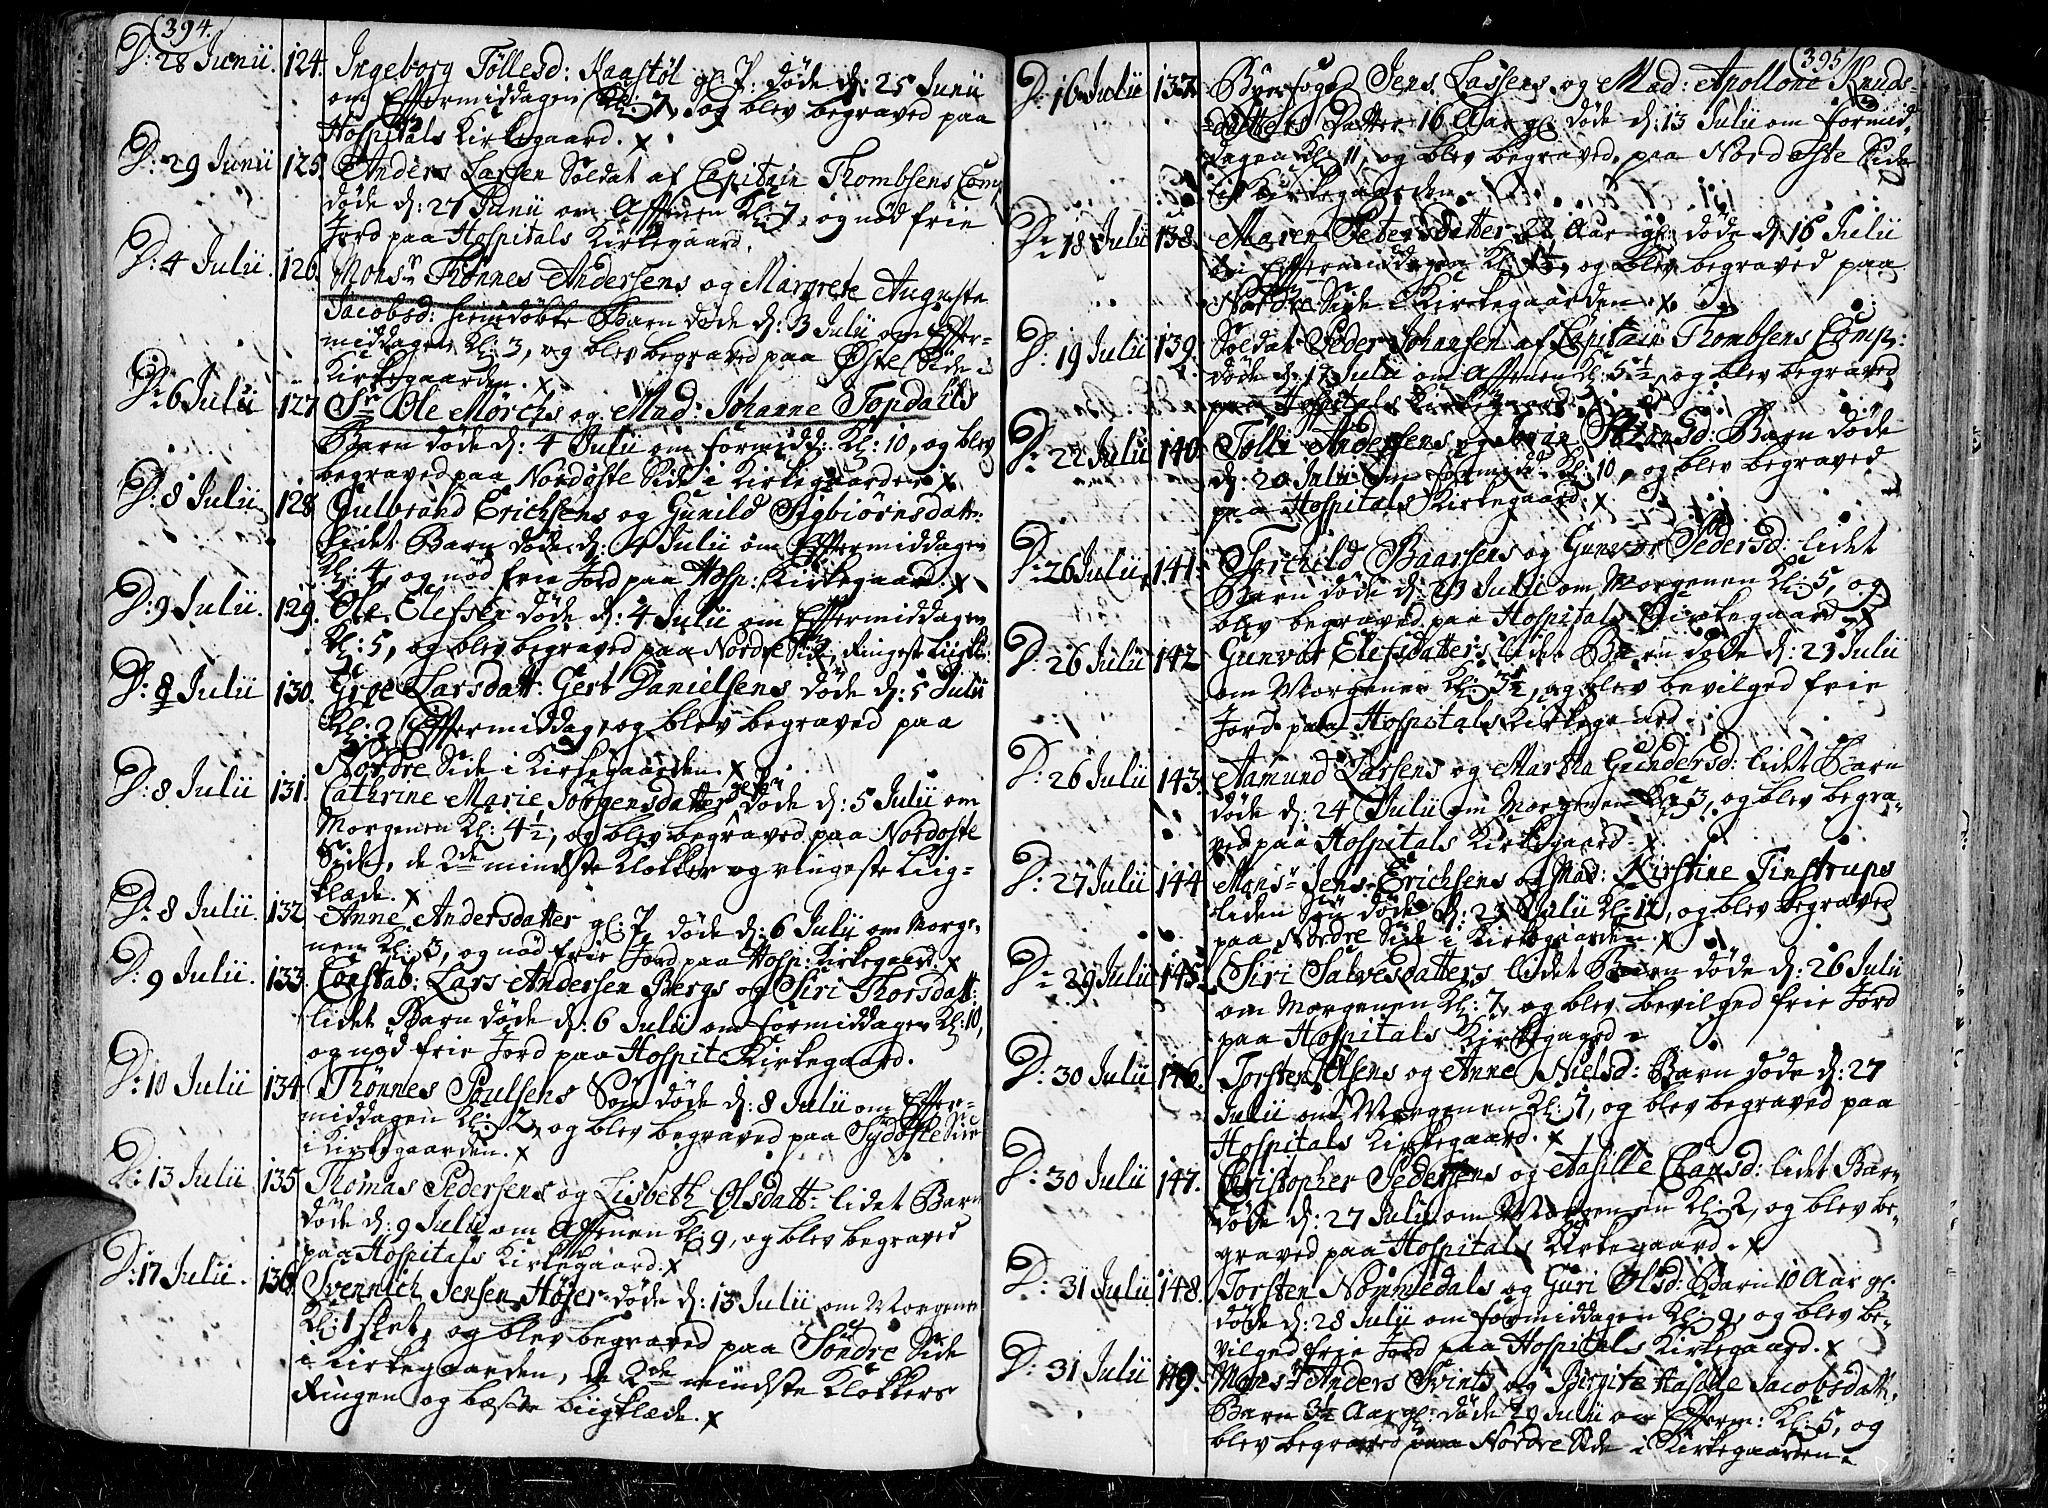 394.
D: 28 Junii. 124. Ingeborg Tøllesd: Raastøl gl. 7. døde d: 25 Junii
om Eftermiddagen Kl: 7, og blev begraved paa
Hospitals Kirkegaard. x
D: 29 Junii 125. Anders Larsen Soldat af Capitain Thombsens Comp
døde d: 27 Junii om Afftenen Kl: 7, og nød frie
Jord paa Hospitals Kirkegaard.
D: 4 Julii. 126. Monsr Thønnes Andersens og Margrete Auguste
Jacobsd: hiemdøbte Barn døde d: 3 Julii om Effter-
middagen Kl: 3, og blev begraved paa Øste Side i
Kirkegaarden. x
D: 6 Julii 127. Sr Ole Mørchs og Mad: Johanne Topdahls
Barn døde d: 4 Julii om formidd: Kl: 10, og blev
begraved paa Nordøste Side i Kirkegaarden x
D: 8 Julii 128. Gulbrand Erichsens og Gunild Sigbiørnsdatt:
lidet Barn døde d: 4 Julii om Effter middagen
Kl: 4, og nød frie Jord paa Hosp: Kirkegaard. x
D: 9 Julii. 129. Ole Elefsen døde d: 4 Julii om Effter middagen
Kl: 5, og blev begraved paa Nordre Side, Ringeste Liigkl:
D: 8 Julii 130. Groe Larsdatt: Gert Danielsens døde d: 5 Julii
Kl: 2 Effter middag, og blev begraved paa
Nordre Side i Kirkegaarden. x
D: 8 Julii 131. Cathrine Marie Jørgensdatter døde d: 5 Julii om
Morgenen Kl: 4½, og blev begraved paa Nordøste
Side, de 2de mindste Klokker og ringeste Liig-
klæde. x
D: 8 Julii. 132. Anne Andersdatter gl: 7, døde d: 6 Julii om Morge-
nen Kl: 3, og nød frie Jord paa Hosp: Kirkegaard. x
D: 9 Julii 133. Constab: Lars Andersen Bergs og Siri Thorsdatt:
lidet Barn døde d: 6 Julii om formiddagen Kl: 10,
og nød frie Jord paa Hospit: Kirkegaard.
D: 10 Julii 134. Thønnes Poulsens Søn døde d: 8 Julii om Effter-
middagen Kl: 2, og blev begraved paa Sydøste Side
i Kirkegaarden. x
D: 13 Julii 135. Thomas Pedersens og Lisbeth Olsdatt: lidet Barn
døde d: 9 Julii om Afftenen Kl: 9, og blev begraved
paa Hospitals Kirkegaard. x
D: 17 Julii. 136. Svennich Jensen Høier døde d: 15 Julii om Morgenen
Kl: 1 slet, og blev begraved paa Søndre Side
i Kirkegaarden, de 2de mindste Klokkers
Ringen og beste Liigklæde. x
395
D: 16 Julii 137. Byefogd Jens Lassens og Mad: Apollone Knuds-
datters Datter 16 Aar gl: døde d: 13 Julii om formid-
dagen Kl: 11, og blev begraved paa Nordøste Side
i Kirkegaarden.
D: 18 Julii 138. Maren Petersdatter 22 Aar gl: døde d: 16 Julii
om Effter middagen Kl: og blev begraved paa
Nordre Side i Kirkegaarden. x
D: 19 Julii 139. Soldat Peder Johansen af Capitain Thombsens Comp:
døde d: 17 Julii om Afftenen Kl: 5½, og blev begraved
paa Hospitals Kirkegaard.
D: 22 Julii 140. Tolli Andersens og Barn døde
d: 20 Julii om formidd: Kl: 10, og blev begraved
paa Hospitals Kirkegaard. x
D: 26 Julii 141. Torchild Baarsens og Gunvor Pedersd: lidet
Barn døde d: 23 Julii om Morgenen Kl: 5, og
blev begraved paa Hospitals Kirkegaard x
D: 26 Julii 142. Gunvor Elefsdatters lidet Barn døde d: 23 Julii
om Morgenen Kl: 3½, og blev bevilged frie
Jord paa Hospitals Kirkegaard.
D: 26 Julii 143. Aamund Larsens og Martha Gundersd: lidet Barn
døde d: 24 Julii om Morgenen Kl: 3, og blev begra-
ved paa Hospitals Kirkegaard. x
D: 27 Julii 144. Monsr Jens Erichsens og Mad: Kirstine Tinstrups
liden Søn døde d: 23 Julii Kl: 12, og blev begraved
paa Nordre Side i Kirkegaarden. x
D: 29 Julii 145. Siri Salvesdatters lidet Barn døde d: 26 Julii
om Morgenen Kl: 7, og blev bevilged frie Jord
paa Hospitals Kirkegaard
D: 30 Julii 146. Torsten Olsens og Anne Nielsd: Barn døde d: 27
Julii om Morgenen Kl: 7, og blev begraved paa
Hospitals Kirkegaard. x
D: 30 Julii 147. Christopher Pedersens og Aasille Hansd: lidet Barn
døde d: 27 Julii om Morgenen Kl: 2, og blev be-
graved paa Hospitals Kirkegaard. x
D: 31 Julii 148. Torsten Nommedals og Guri Olsd: Barn 10 Aar gl:
døde d: 28 Julii om formiddagen Kl: 9, og blev be-
vilged frie Jord paa Hospitals Kirkegaard. x
D: 31 Julii 149. Monsr Anders Svints og Birgite Jacobsdatt:
Barn 3½ Aar gl: døde 29 Julii om Efterm: Kl: 5, og
blev begraved paa Nordre Side i Kirkegaarden